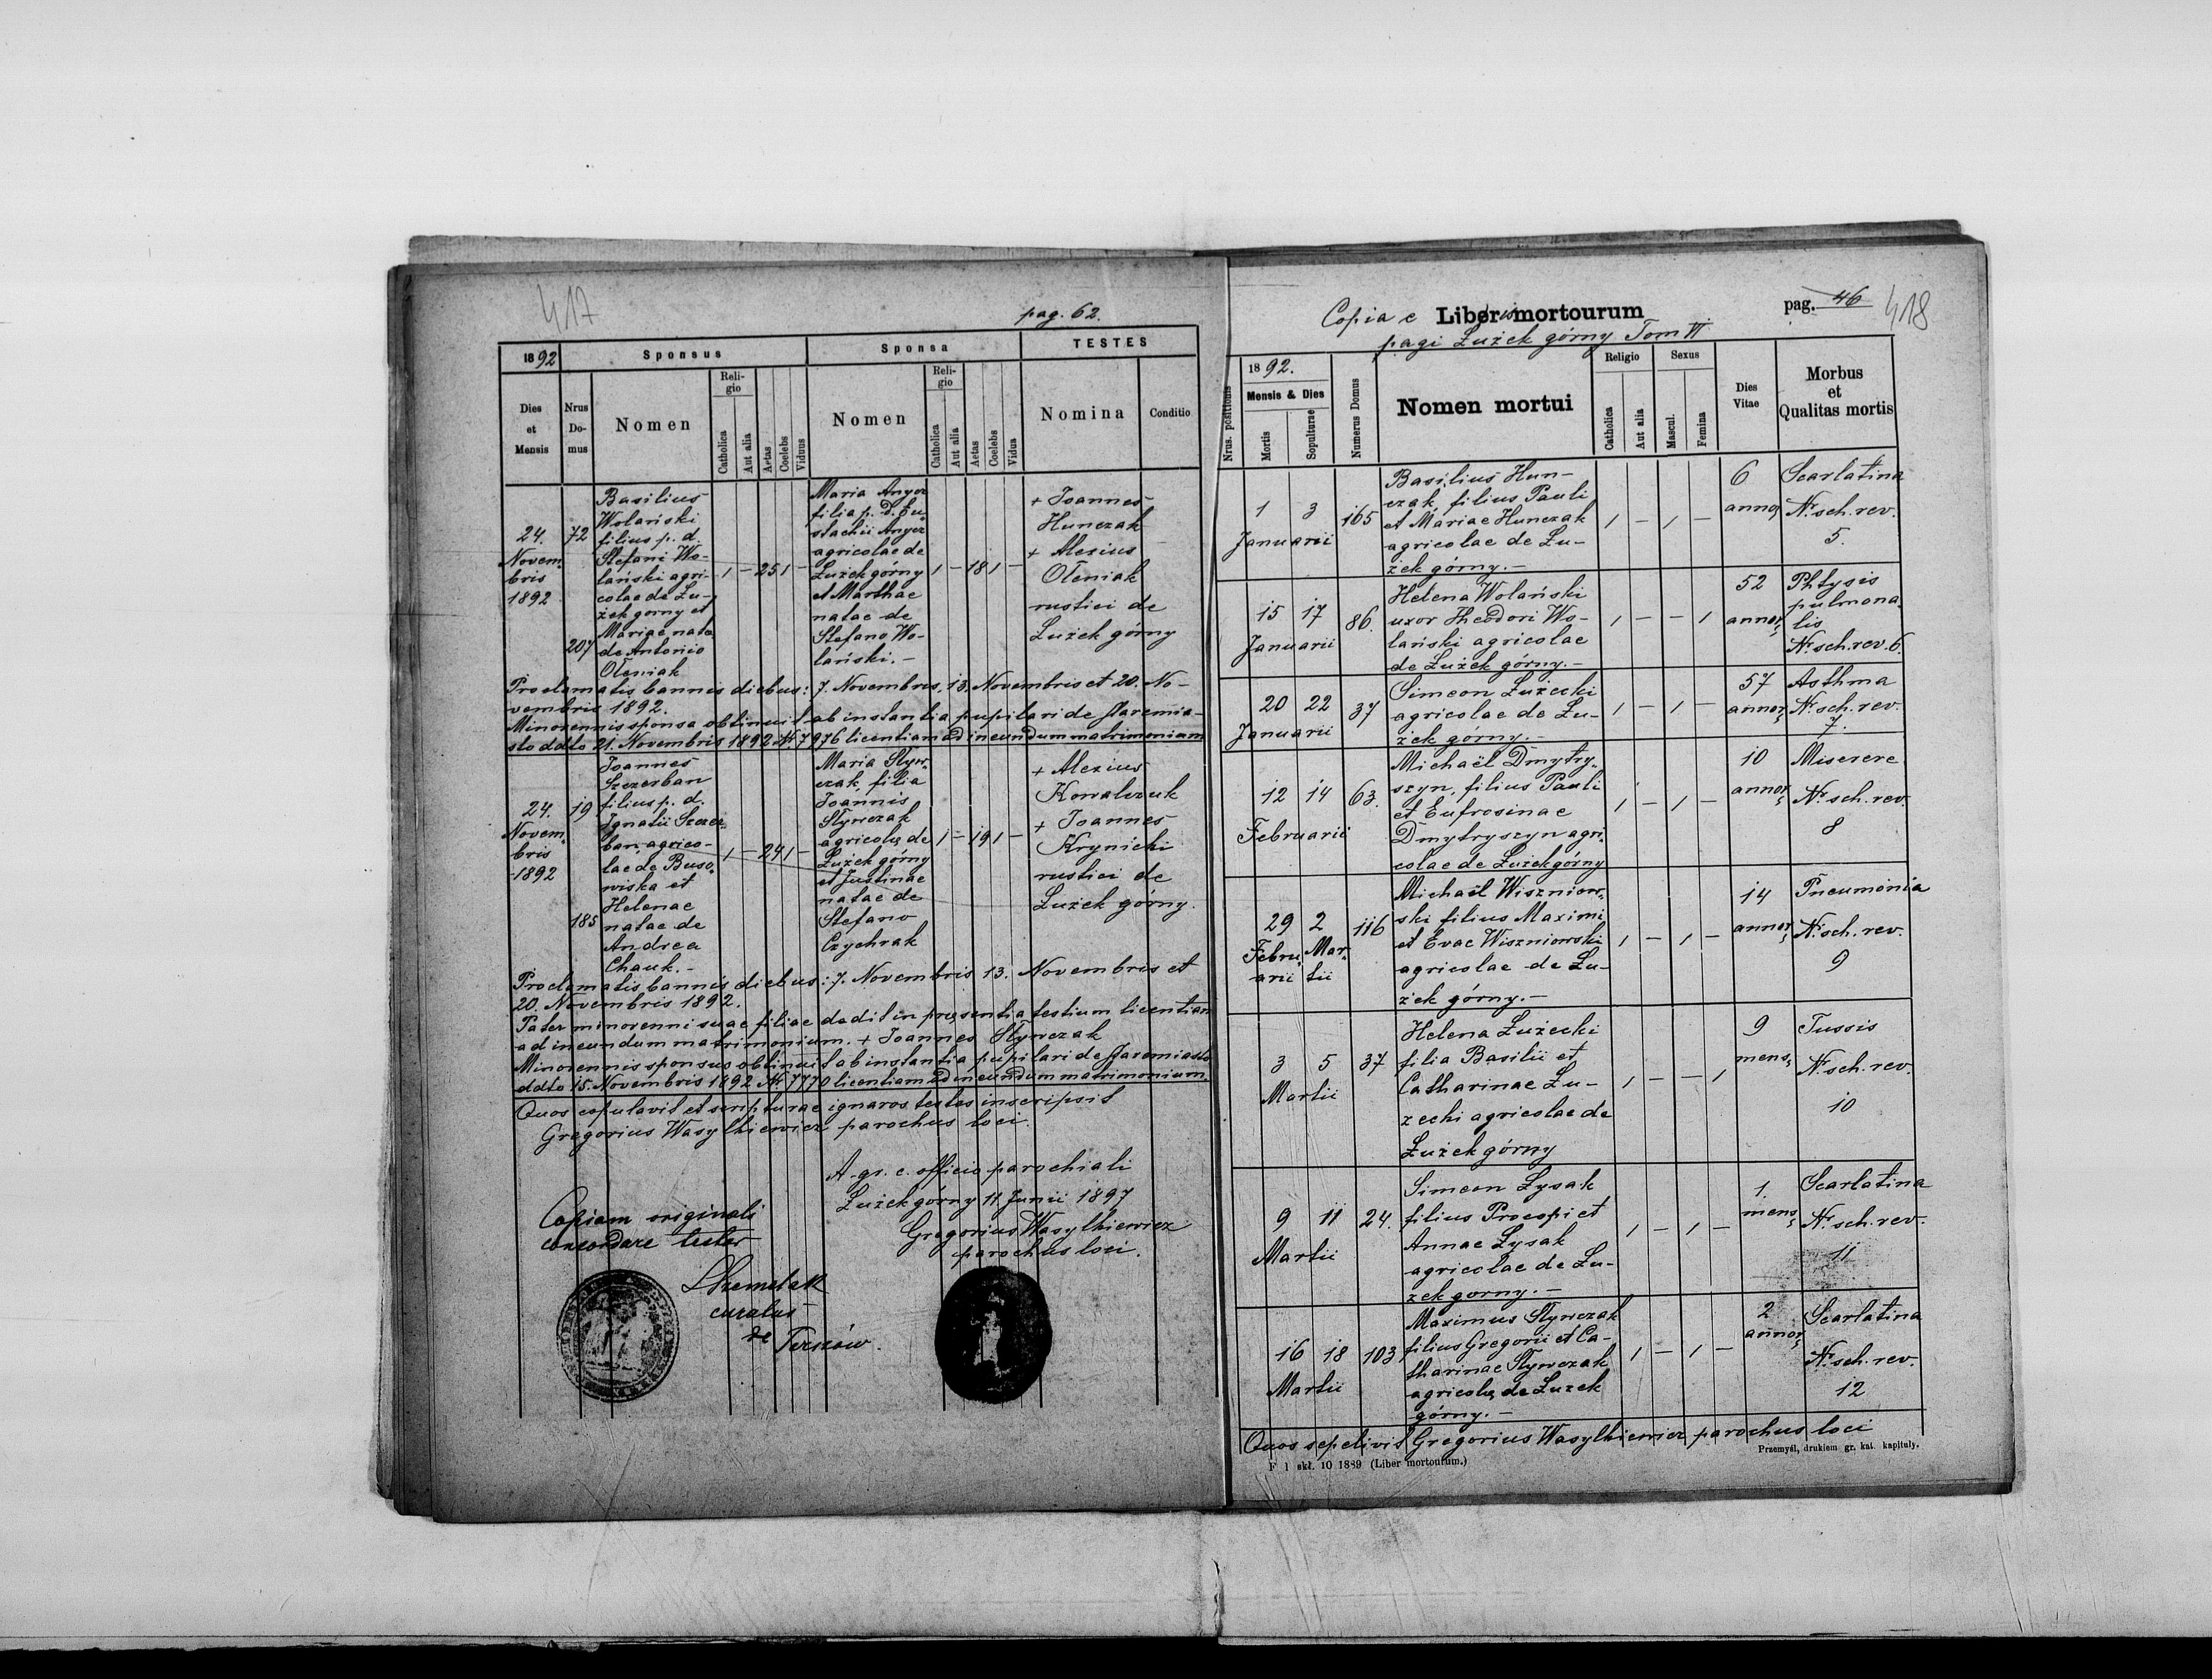 417
pag. 62.
1892
Sponsus
Sponsa
TESTES
Dies et Mensis
Nrus Domus
Nomen
Religio
Catholica
Aut alia
Aetas
Coelebs
Viduus
Nomen
Religio
Catholica
Aut alia
Aetas
Coelebs
Vidua
Nomina
Conditio
24.
Novem-
bris
1892
72
207
Basilius
Wolański
filius p. d.
Stefani Wo-
lański agri-
colae de Łu-
żek gorny et
Mariae nata
de Antonio
Oleniak
1 - 25 1 -
Maria Anycz
filia p. d. Eu-
stachii Anycz
agricolae de
Łużek górny
et Marthae
natae de
Stefano Wo-
lański. -
1 - 18 1 -
+ Joannes
Hunczak
+ Alexius
Oleniak
rustici de
Łużek górny
Proclamatis bannis diebus: 7. Novembris, 13. Novembris et 20. No-
vembris 1892.
Minorennis sponsa obtinuit ab instantia pupilari de Staremia-
sto ddto 21. Novembris 1892 Nr 7976 licentiam ad ineundum matrimonium
24.
Novem-
bris
1892
19
185
Joannes
Szczerban
filius p. d.
Ignatii Szczer-
ban agrico-
lae de Buso-
wiska et
Helenae
natae de
Andrea
Chauk. -
1 - 24 1 -
Maria Slyw-
czak, filia
Joannis
Slywczak
agricolę de
Łużek górny
et Justinae
natae de
Stefano
Czychrak
1 - 19 1 -
+ Alexius
Kowalczuk
+ Joannes
Krynicki
rustici de
Łużek górny.
Proclamatis bannis diebus: 7. Novembris 13. Novembris et
20. Novembris 1892.
Pater minorenni suae filiae dedit in pręsentia testium licentiam
ad ineundum matrimonium. + Joannes Slywczak
Minorennis sponsus obtinuit ab instantia pupilari de Staremiasto
ddto 15. Novembris 1892 Nr 7770 licentiam ad ineundum matrimonium.
Quos copulavit et scripturae ignaros testes inscripsit
Gregorius Wasylkiewicz parochus loci.
A gr. c. officio parochiali
Łużek górny 11 Junii 1897
Gregorius Wasylkiewicz
parochus loci.
Copiam originali
concordare testor
curatus
de Terszów.
418
Copia e Liber is mortourum
pag. 46
pagi Łużek górny Tom VI
Nrus. positionis
1892.
Mensis & Dies
Mortis
Sepulturae
Numerus Domus
Nomen mortui
Religio
Catholica
Aut alia
Sexus
Mascul.
Femina
Dies Vitae
Morbus
et
Qualitas mortis
1 3
Januarii
165
Basilius Hun-
czak, filius Pauli
et Mariae Hunczak
agricolae de Łu-
żek górny. -
1 - 1 -
6
annor
Scarlatina
Nr. sch. rev.
5.
15 17
Januarii
86.
Helena Wolański
uxor Theodori Wo-
lański agricolae
de Łużek górny. -
1 - - 1
52
annor
Phtysis
pulmona-
lis
Nr sch. rev. 6.
20 22
Januarii
37
Simeon Łużecki
agricolae de Łu-
żek górny. -
1 - 1 -
57
annor
Asthma
Nr. sch. rev.
7.
12 14
Februarii
63.
Michaël Dmytry-
szyn, filius Pauli
et Eufrosinae
Dmytryszyn agri-
colae de Łużek górny
1 - 1 -
10
annor
Miserere
Nr sch. rev.
8
29 2
Febru- Mar-
arii tii
116
Michaël Wiszniow-
ski filius Maximi
et Evae Wiszniowski
agricolae de Łu-
żek górny. -
1 - 1 -
14
annor
Pneumonia
Nr. sch. rev.
9
3 5
Martii
37
Helena Łużecki
filia Basilii et
Catharinae Łu-
zecki agricolae de
Łużek górny
1 - - 1
9
mens
Tussis
Nr. sch. rev.
10
9 11
Martii
24.
Simeon Łysak
filius Procopi et
Annae Łysak
agricolae de Łu-
zek gorny. -
1 - 1 -
1.
mens
Scarlatina
Nr. sch. rev.
11
16 18
Martii
103
Maximus Slywczak
filius Gregorii et Ca-
tharinae Slywczak
agricolę de Łuzek
górny. -
1 - 1 -
2
annor
Scarlatina
Nr. sch. rev.
12
Quos sepelivit Gregorius Wasylkiewicz parochus loci
F 1 skł. 10 1889 (Liber mortourum.)
Przemyśl, drukiem gr. kat. kapituły.